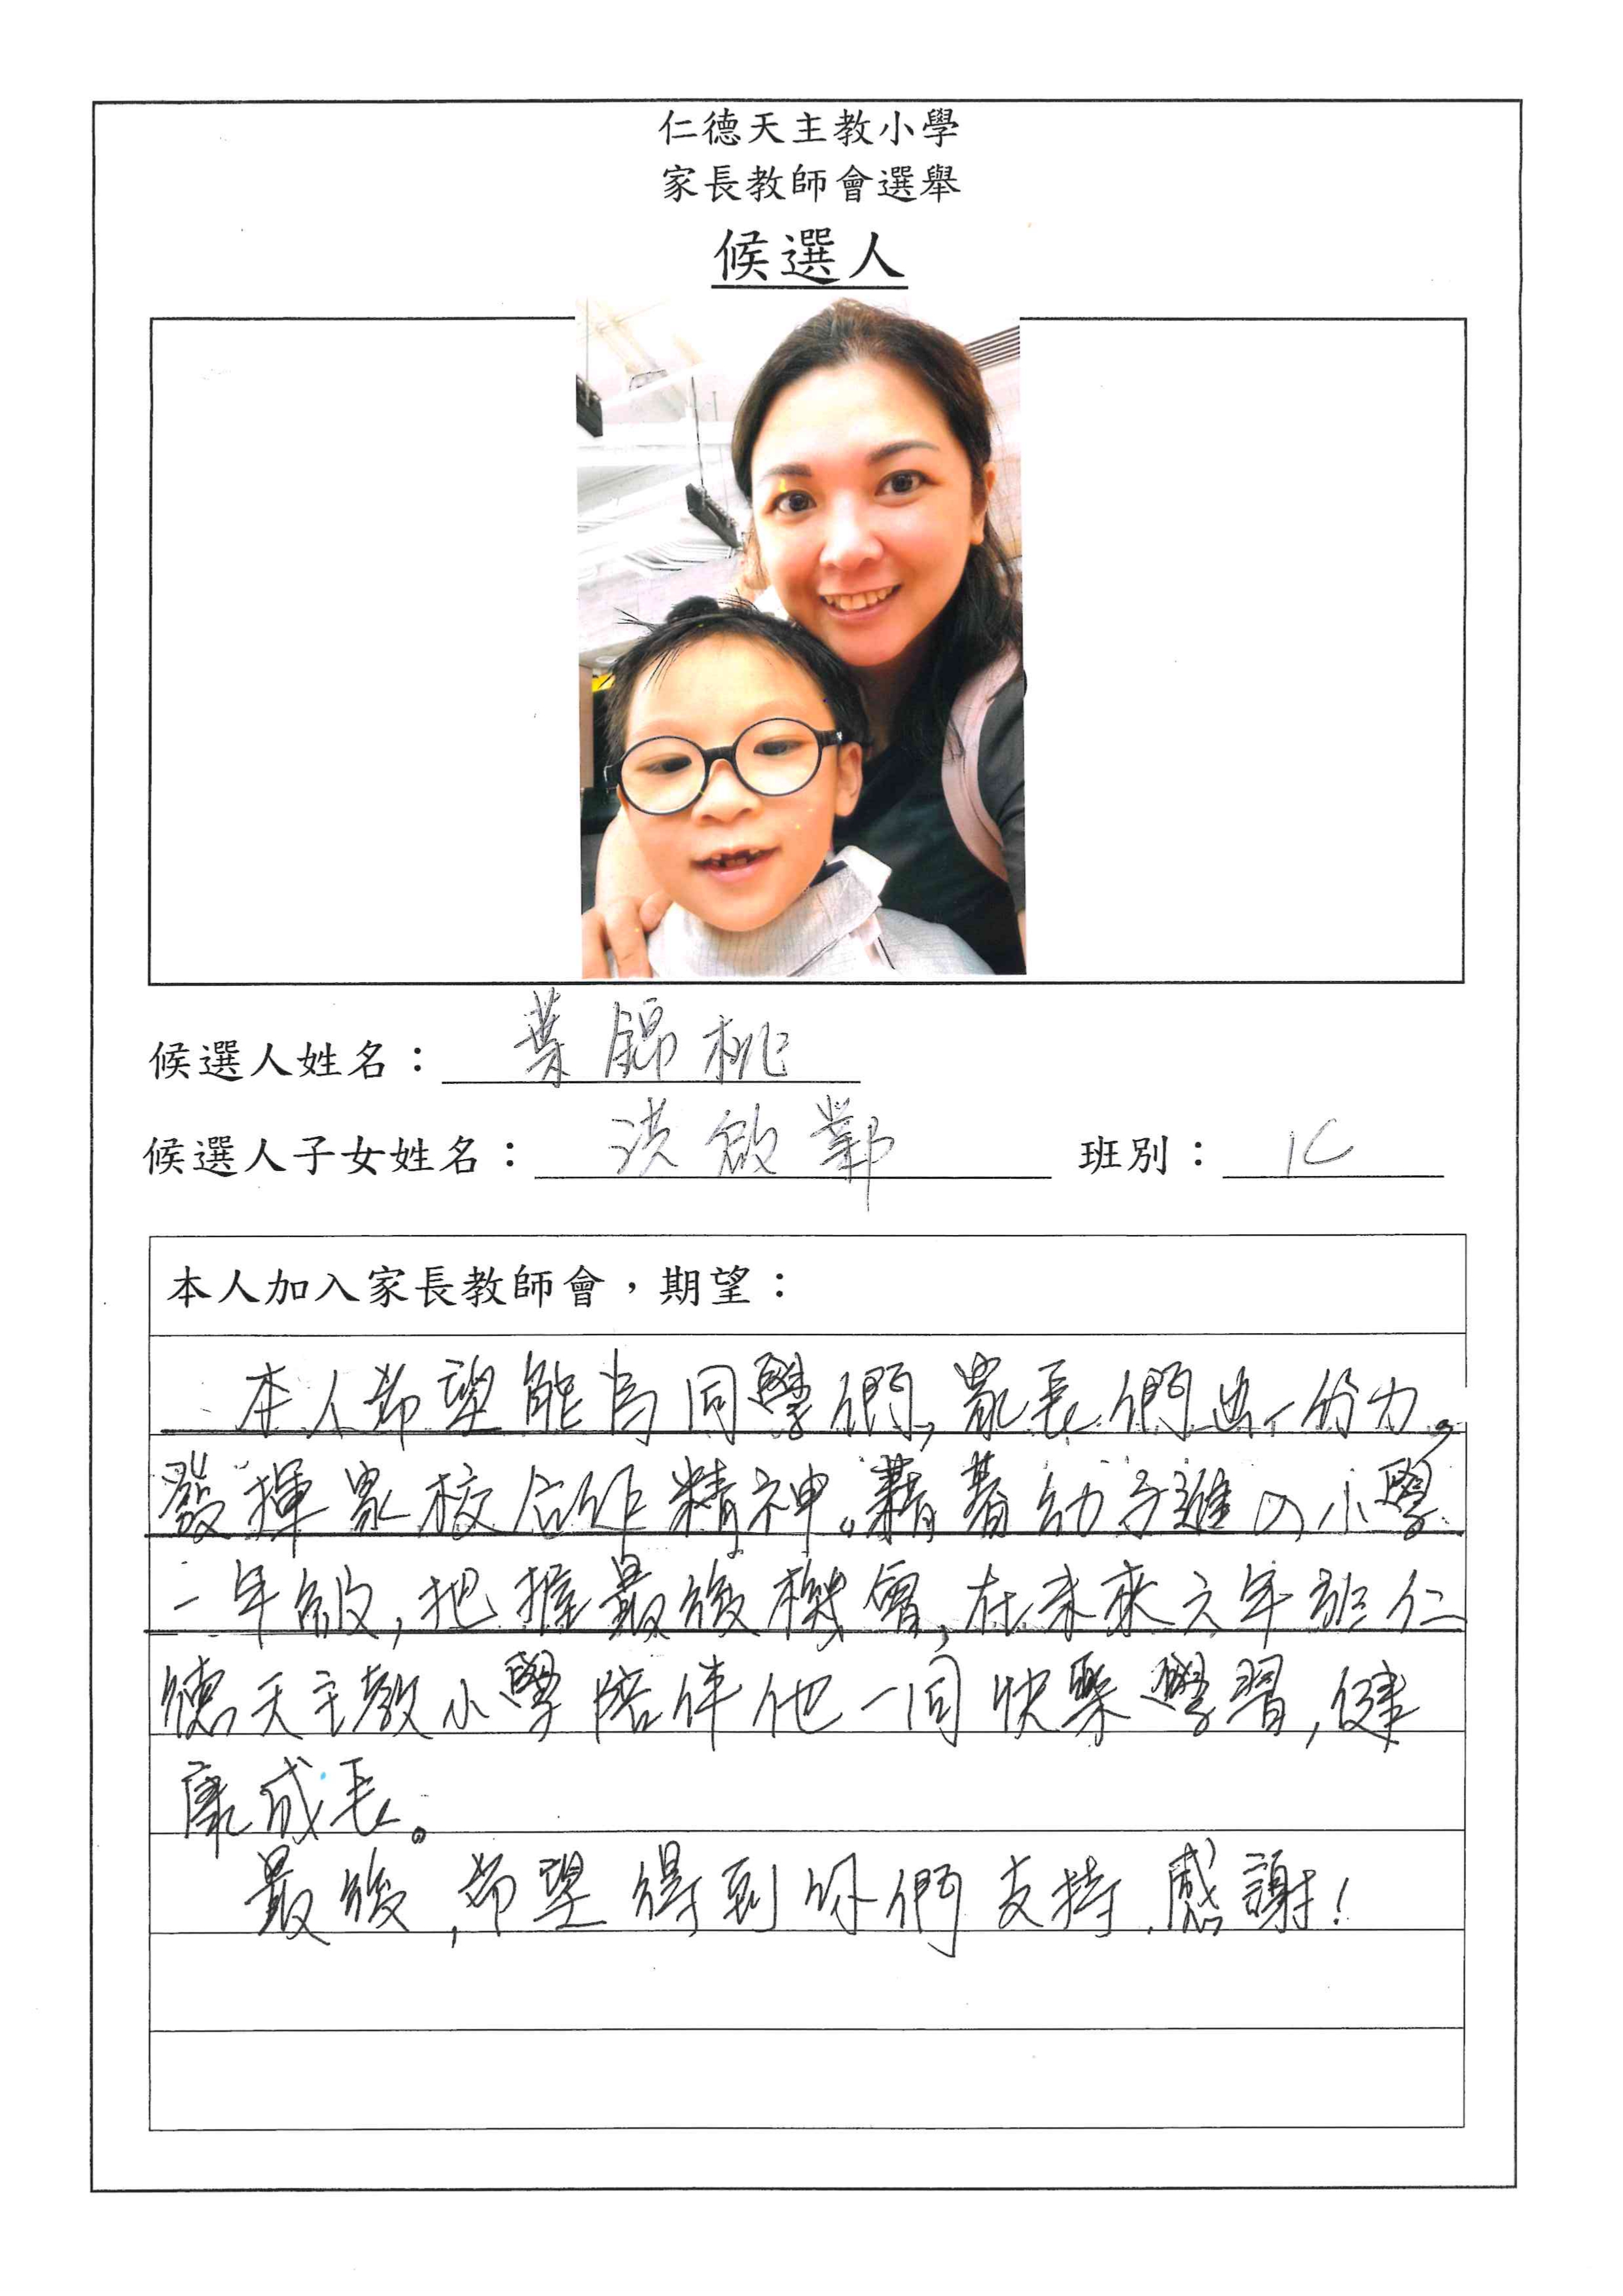 仁德天主教小學
家長教師會選舉
候選人
候選人姓名：葉錦桃
候選人子女姓名：洪啟鄴 班別：1C
本人加入家長教師會，期望：
本人希望能為同學們,家長們出一份力,
發揮家校合作精神。藉着幼子進入小學
一年級,把握最後機會,在未來六年於仁
德天主教小學陪伴他一同快樂學習,健
康成長。
最後,希望得到你們支持,感謝!